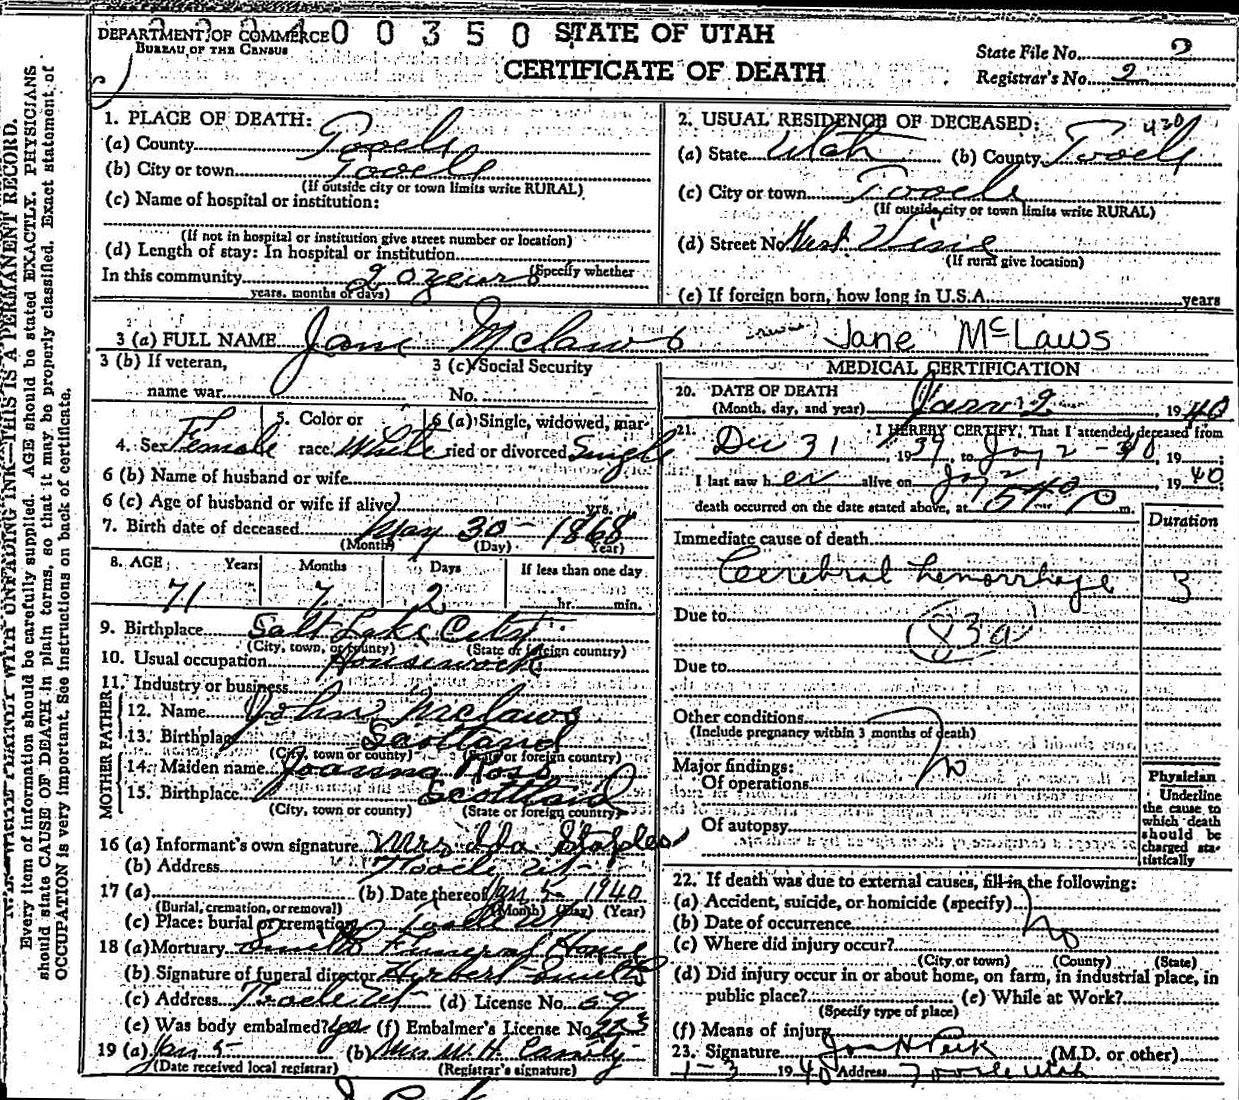 DEPARTMENT OF COMMERCE 0 0 3 5 0 STATE OF UTAH
BUREAU OF THE CENSUS
CERTIFICATE OF DEATH
State File No. 2
Registrar's No. 2
N. B.—WRITE PLAINLY WITH UNFADING INK—THIS IS A PERMANENT RECORD.
Every item of information should be carefully supplied. AGE should be stated EXACTLY. PHYSICIANS
should state CAUSE OF DEATH in plain terms, so that it may be properly classified. Exact statement of
OCCUPATION is very important. See instructions on back of certificate.
1. PLACE OF DEATH:
(a) County Tooele
(b) City or town Tooele
(If outside city or town limits write RURAL)
(c) Name of hospital or institution:
(If not in hospital or institution give street number or location)
(d) Length of stay: In hospital or institution
(Specify whether
In this community 20 years
years, months or days)
2. USUAL RESIDENCE OF DECEASED: 420
(a) State Utah (b) County Tooele
(c) City or town Tooele
(If outside city or town limits write RURAL)
(d) Street No. West Vine
(If rural give location)
(e) If foreign born, how long in U.S.A. years
3 (a) FULL NAME Jane Mclaws Jane McLaws
3 (b) If veteran,
name war
3 (c) Social Security
No.
4. Sex Female
5. Color or
race White
6 (a) Single, widowed, mar-
ried or divorced Single
6 (b) Name of husband or wife
6 (c) Age of husband or wife if alive yrs.
7. Birth date of deceased May 30 - 1868
(Month) (Day) (Year)
8. AGE Years Months Days If less than one day
71 7 2 hr. min.
9. Birthplace Salt Lake City
(City, town, or county) (State or foreign country)
10. Usual occupation Housework
11. Industry or business
FATHER
12. Name John Mclaws
13. Birthplace Scotland
(City, town or county) (State or foreign country)
MOTHER
14. Maiden name Joanna Ross
15. Birthplace Scotland
(City, town or county) (State or foreign country)
16 (a) Informant's own signature Mrs Ida Staples
(b) Address Tooele Ut
17 (a) (b) Date thereof Jan 5 - 1940
(Burial, cremation, or removal) (Month) (Day) (Year)
(c) Place: burial or cremation Tooele Ut
18 (a) Mortuary Funeral Home
(b) Signature of funeral director Herbert
(c) Address Tooele Ut (d) License No. 69
(e) Was body embalmed? yes (f) Embalmer's License No. 223
19 (a) Jan 5 (b) Mrs W. H.
(Date received local registrar) (Registrar's signature)
MEDICAL CERTIFICATION
20. DATE OF DEATH
(Month, day, and year) Jan 2 1940
21. I HEREBY CERTIFY, That I attended deceased from
Dec 31 1939, to Jan 2 - 40, 19
I last saw h er alive on Jan 2 1940
death occurred on the date stated above, at 540 P m.
Duration
Immediate cause of death
Cerebral hemorrhage 3
Due to
83a
Due to
Other conditions
(Include pregnancy within 3 months of death)
Major findings:
Of operations no
Of autopsy
Physician
Underline
the cause to
which death
should be
charged sta-
tistically
22. If death was due to external causes, fill in the following:
(a) Accident, suicide, or homicide (specify)
(b) Date of occurrence no
(c) Where did injury occur?
(City or town) (County) (State)
(d) Did injury occur in or about home, on farm, in industrial place, in
public place? (e) While at Work?
(Specify type of place)
(f) Means of injury
23. Signature Jos H Peck (M.D. or other)
1-3 1940 Address Tooele Utah